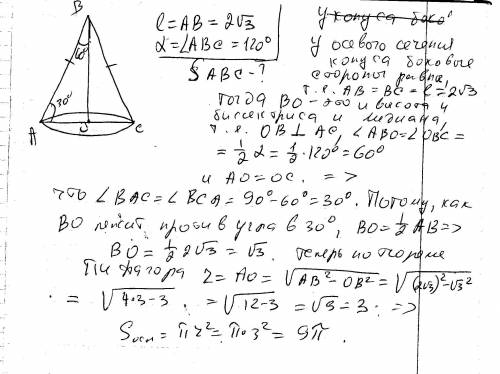 B
60°
30°
A
O
C
l = AB = 2√3
α = ∠ABC = 120°
S ABC - ?
У осевого сечения
конуса боковые
стороны равны,
т.е. AB = BC = l = 2√3
Тогда BO - это и высота и
биссектриса и медиана,
т.е. OB ⊥ AC, ∠ABO = ∠OBC =
= 1/2 α = 1/2 · 120° = 60°
и AO = OC. =>
что ∠BAC = ∠BCA = 90° - 60° = 30°. Потому, как
BO лежит против угла в 30°, BO = 1/2 AB =>
BO = 1/2 2√3 = √3. Теперь по теореме
Пифагора r = AO = √AB² - OB² = √(2√3)² - √3²
= √4·3-3 = √12-3 = √9 = 3. =>
Sосн = πr² = π·3² = 9π.